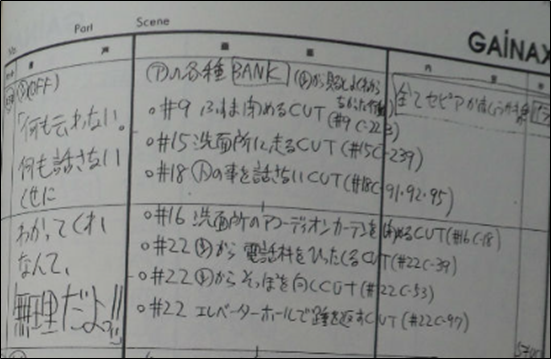 Part
Scene
GAINAX
(OFF)
「何も云わない。
何も話さない
くせに
わかってくれ
なんて、
無理だよ!!
の各種 BANK
全てセピアか
○#9 ふすま閉めるCUT (#9 C-223)
○#15 洗面所に走るCUT (#15C-239)
○#18 の事を話さないCUT (#18C-91・92・95)
○#16 洗面所のアコーディオンカーテンを閉めるCUT (#16C-18)
○#22 から電話料をひったくるCUT (#22C-39)
○#22 からそっぽを向くCUT (#22C-53)
○#22 エレベーターホールで踵を返すCUT (#22C-97)